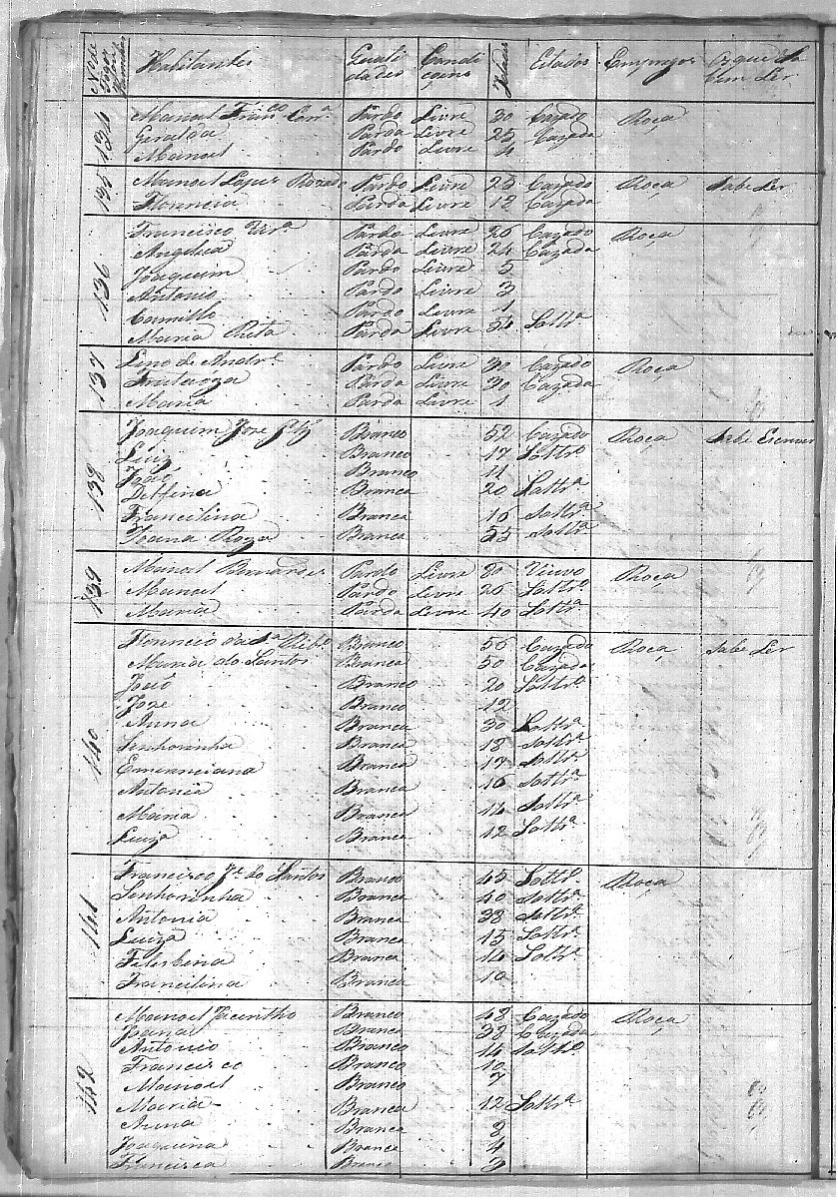 Nº de Fogos Habitantes Quali dades Condi çoins Idades Estados Empregos Os que Sa bem Ler
134
Manoel Franco Corrª Pardo Livre 30 Cazado Roça
Geralda Parda Livre 25 Cazada
Manoel Pardo Livre 4
135
Manoel Lopes Pardo Livre 25 Cazado Roça Sabe Ler
Florencia Parda Livre 12 Cazada
136
Francisco Pardo Livre 26 Cazado Roça
Angelica Parda Livre 24 Cazada
Joaquim Pardo Livre 5
Antonio Pardo Livre 3
Camillo Pardo Livre 1
Maria Rita Parda Livre 54 Soltrª
137
Lino de Andrº Pardo Livre 30 Cazado Roça
Parda Livre 30 Cazada
Maria Parda Livre 1
138
Joaquim Joze Branco 52 Cazado Roça Sabe Escrever
Luiz Branco 17 Soltrº
João Branco 11
Delfina Branca 20 Soltrª
Francilina Branca 16 Soltrª
Joana Roza Branca 55 Soltrª
139
Manoel Bernardes Pardo Livre 80 Viuvo Roça
Manoel Pardo Livre 26 Soltrº
Maria Parda Livre 40 Soltrª
140
Florencio da Sª Ribrº Branco 56 Cazado Roça Sabe Ler
Maria do Santos Branca 50 Cazada
João Branco 20 Soltrº
Joze Branco 12
Anna Branca 30 Soltrª
Senhorinha Branca 18 Soltrª
Emerenciana Branca 17 Soltrª
Antonia Branca 16 Soltrª
Maria Branca 14 Soltrª
Luiza Branca 12 Soltrª
141
Francisco Jº do Santos Branco 45 Soltrº Roça
Senhorinha Branca 40 Soltrª
Antonia Branca 38 Soltrª
Luiza Branca 15 Soltrª
Felisbina Branca 14 Soltrª
Francilina Branca 10
142
Manoel Jacintho Branco 48 Cazado Roça
Joana Branca 38 Cazada
Antonio Branco 14 Soltrº
Francisco Branco 10
Manoel Branco 7
Maria Branca 12 Soltrª
Anna Branca 8
Joaquina Branca 4
Francisca Branca 3